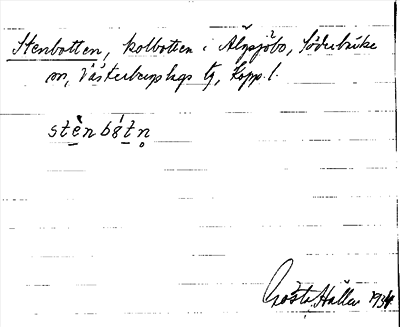 Stenbotten, kolbotten i Älgsjöbo, Söderbärke
sn, Västerbergslags tg, Kopp. l.
stènbótn̥
Gösta Hallen 1934.